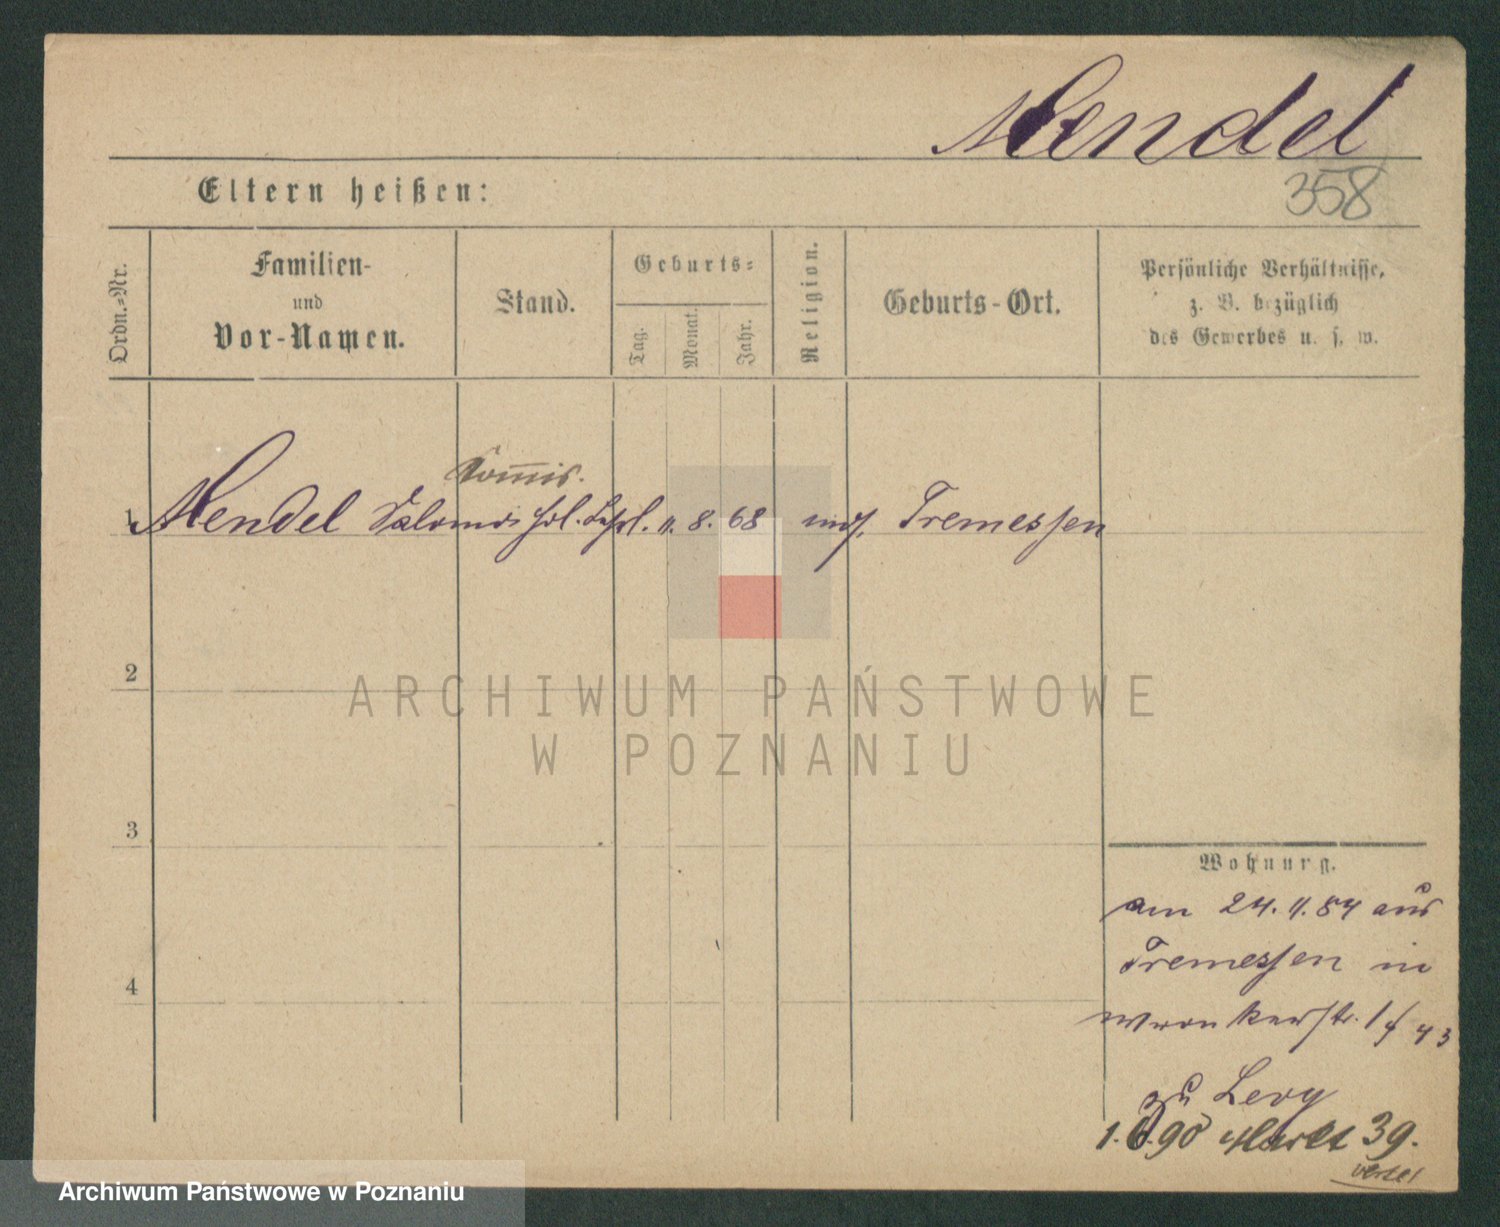 Mendel
358
Eltern heißen:
Ordn.-Nr.
Familien-
und
Vor-Namen.
Stand.
Geburts-
Tag.
Monat.
Jahr.
Religion.
Geburts-Ort.
Persönliche Verhältnisse,
z. B. bezüglich
des Gewerbes u. s. w.
Commis.
1 Mendel Salomon Hdl. Lehrl. 11. 8. 68 mos. Tremessen
2
ARCHIWUM PAŃSTWOWE
W POZNANIU
3
Wohnung.
am 24. 11. 84 aus
Tremessen in
Wronkerstr.
4
zu Levy
1. 90 Markt 39.
Archiwum Państwowe w Poznaniu